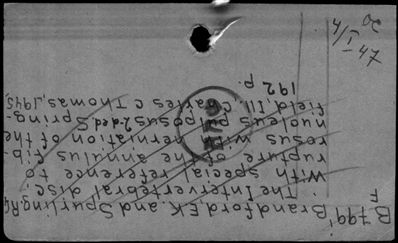 B799i Brandford,E.K. and Spurling,R.G.
F
The Intervertebral disc.
With special reference to
rupture of the annulus fib-
rosus with herniation of the
nucleus pulposus. 2-d ed Spring-
field, Ill. Charles C Thomas, 1945,
192 p.
4/I-47